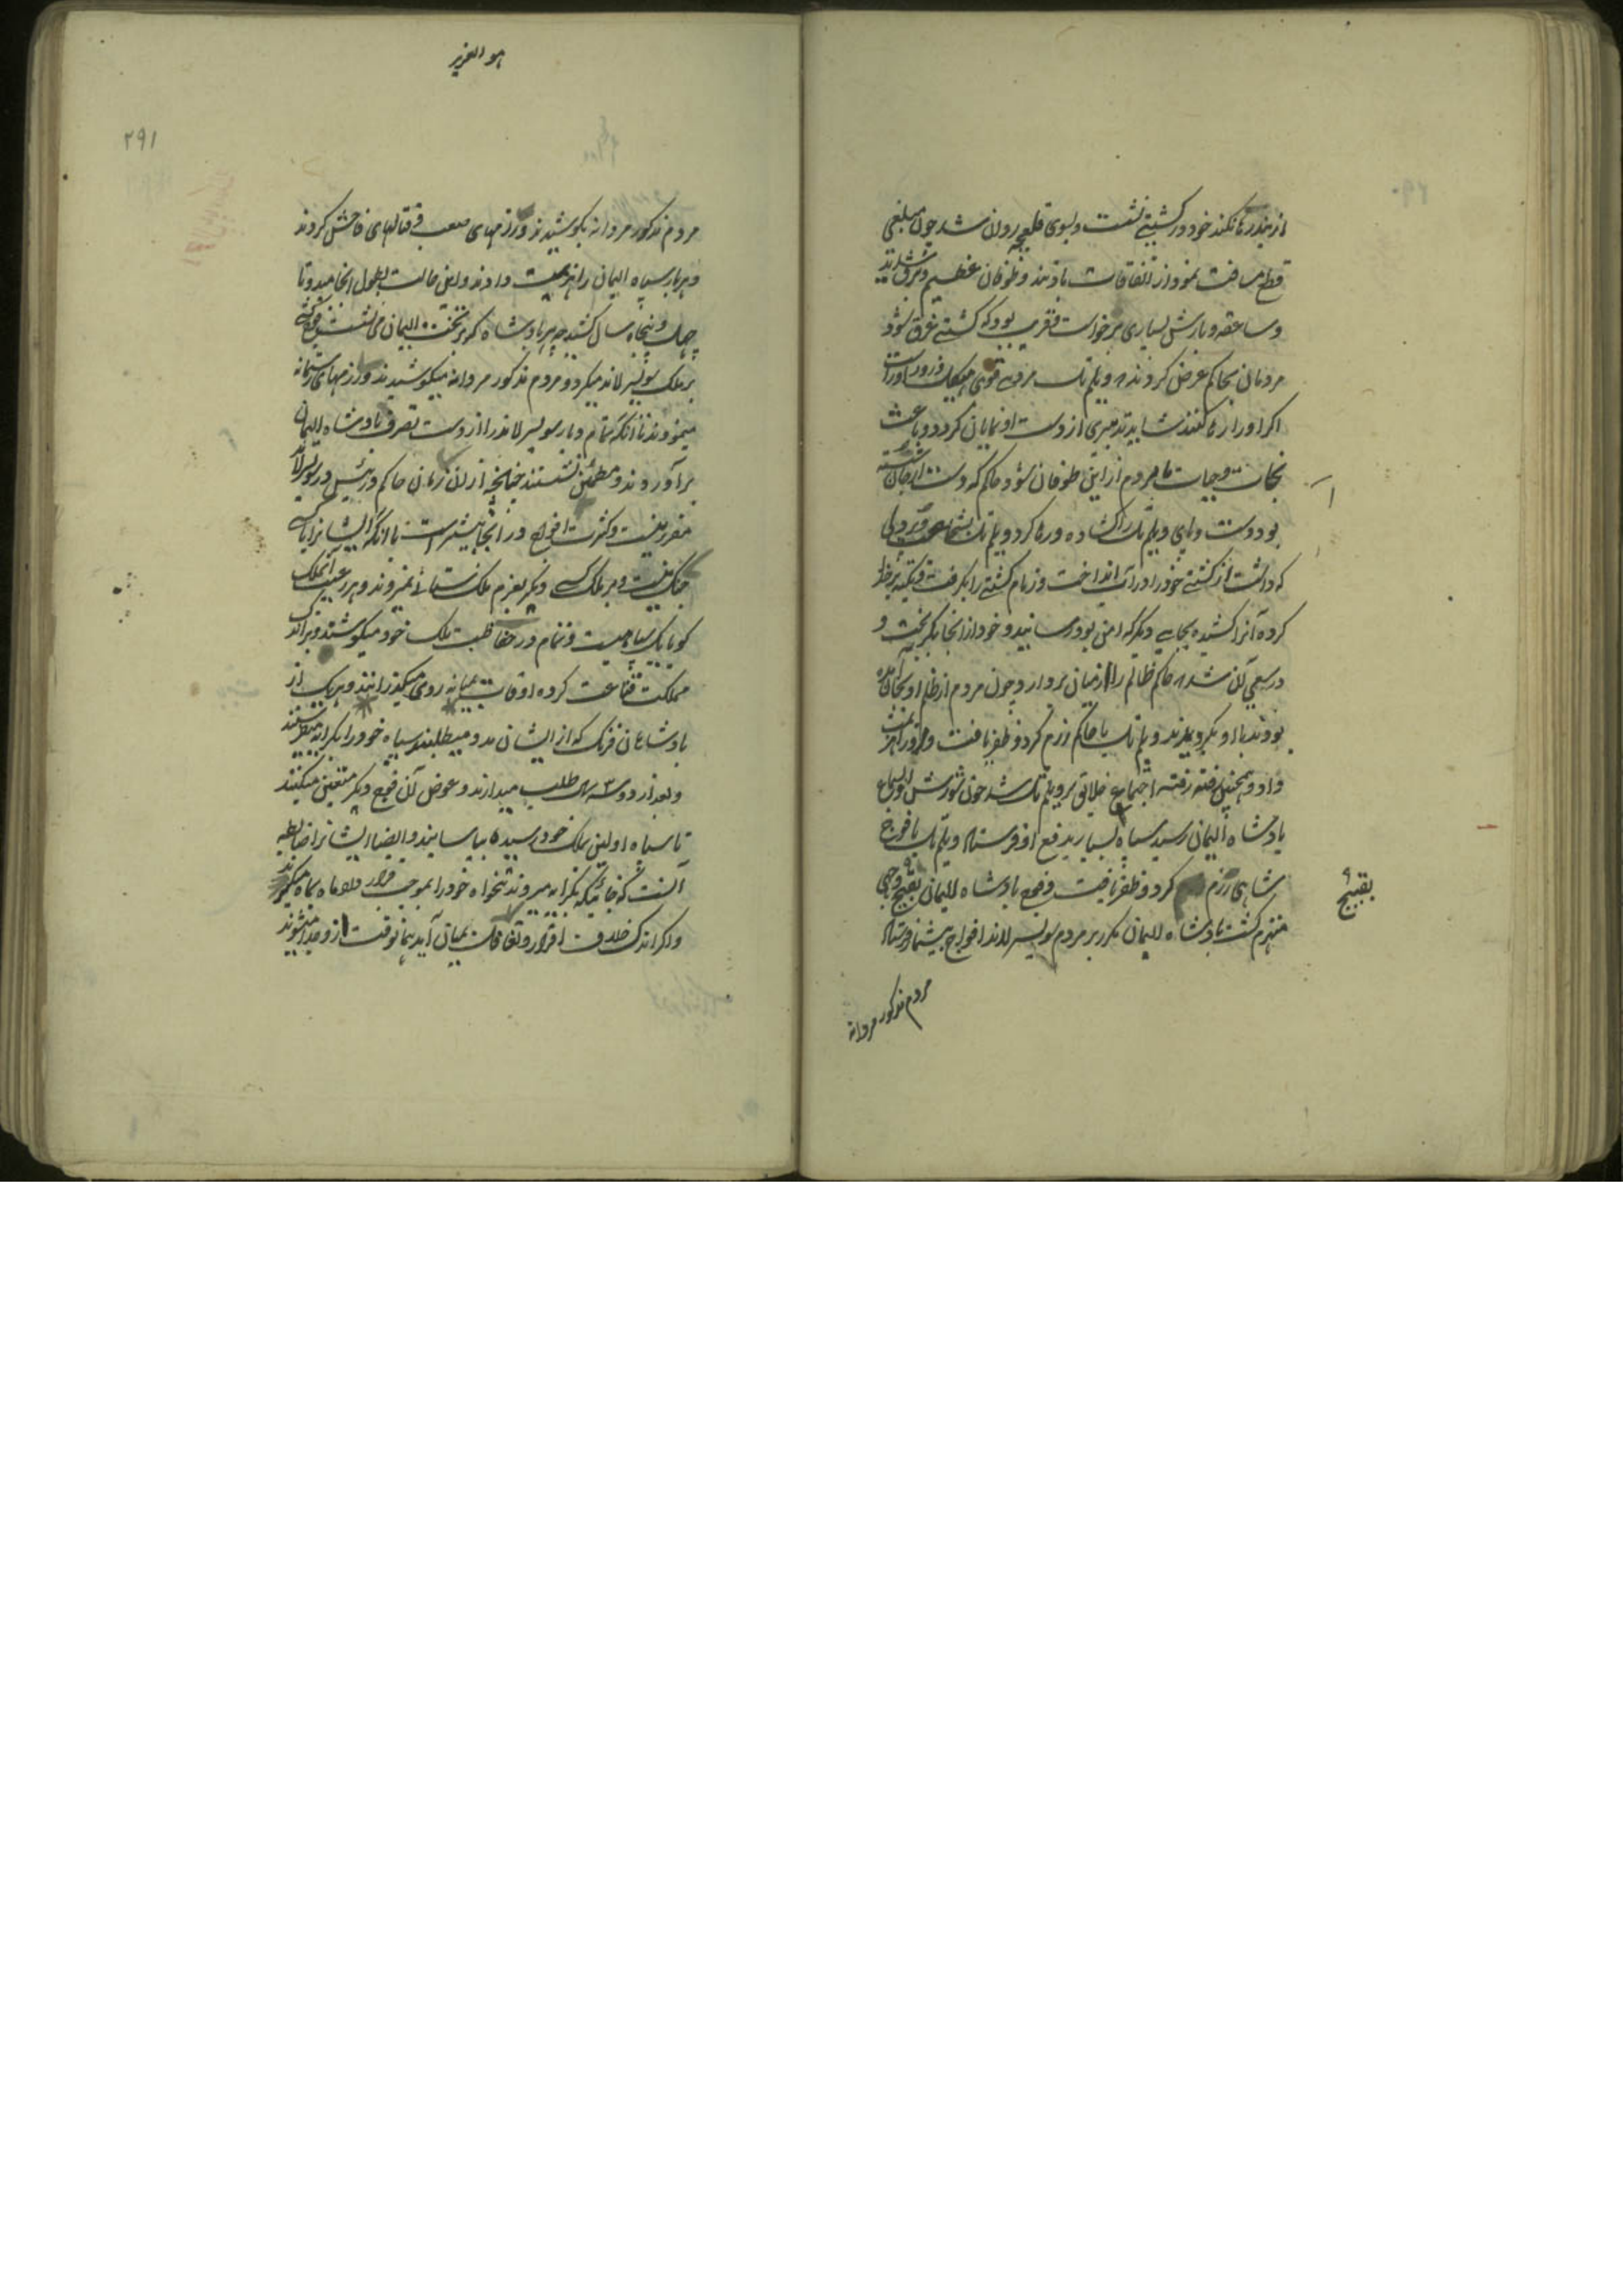 از بندر رها نکند خود در کشتیی نشست و بسوی قلعچه روان شد چون مبلغی
قطع مسافت نمود از اتفاقات باد تند و طوفان عظیم و برق شدید
و صاعقه و بارش بسیاری برخواست و قریب بود که کشتی غرق شود
مردمان بحاکم عرض کردند که ویلم تل مردی قوی هیکل و زورآور است
اگر او را رها کنند شاید تدبیری از دست او نمایان گردد و باعث
نجات و حیات ما مردم از این طوفان شود حاکم که دست از جان شسته
بود دست و پای ویلم تل را گشاده و رها کرد ویلم تل بشجاعت و پردلی
که داشت از کشتی خود را در آب انداخت و زمام کشتی را بگرفت و تکیه بر خدا
کرده آنرا کشیده بجایی دیگر که امن بود رسانید و خود از آنجا بگریخت و
در سعی آن شد که حاکم ظالم را از میان بردارد چون مردم از ظلم او بجان آمده
بودند با او بگرویدند ویلم تل با حاکم رزم کرد و ظفر یافت و او را هزیمت
داد و همچنین رفته رفته اجتماع خلایق بر ویلم تل شد چون شورش او بسماع
پادشاه الیمان رسید سپاه بسیار بدفع او فرستاد ویلم تل با فوج
شاهی رزم کرد و ظفر یافت و فوج پادشاه الیمان بقبیح وجهی
بقبیح
منهزم گشت پادشاه الیمان مکرر بر مردم سویسرلاند افواج بیشمار فرستاد
مردم مذکور مردانه
هو العزیز
۲۹۱
مردم مذکور مردانه بکوشیدند و رزمهای صعب و قتالهای فاحش کردند
و هر بار سپاه الیمان را هزیمت دادند و این حالت بطول انجامید و تا
چهل و پنجاه سال کشید چه هر پادشاه که بر تخت الیمان می نشست فوج کشی
بر ملک سویسرلاند میکرد و مردم مذکور مردانه میکوشیدند و رزمهای رستمانه
مینمودند تا آنکه تمام دیار سویسرلاند را از دست تصرف پادشاه الیمان
برآوردند و مطمئن نشستند چنانچه از آن زمان حاکم و رئیس در سویسرلاند
مقرر نیست و کثرت افواج در آنجا بیشتر است با آنکه ایشانرا با کسی
جنگ نیست و بر ملک کسی دیگر بعزم ملک ستانی نمیروند و هر رعیت آنملک
گویا یک سپاهیست و تمام در حفاظت ملک خود میکوشند و بر اندک
مملکت قناعت کرده اوقات بمیانه روی میگذرانند و هر یک از
پادشاهان فرنگ که از ایشان مدد میطلبند سپاه خود را بکرایه میفرستند
و بعد از دو سه سال طلب میدارند و عوض آن فوج دیگر متعین میکنند
تا سپاه اولین بملک خود رسیده بیاسایند و ایضا ایشانرا ضابطه
آنست که جائیکه بکرایه میروند تنخواه خود را بموجب قرارداد ماه بماه میگیرند
و اگر اندک خلاف اقرار و تفاوت بمیان آید همانوقت از و جدا میشوند